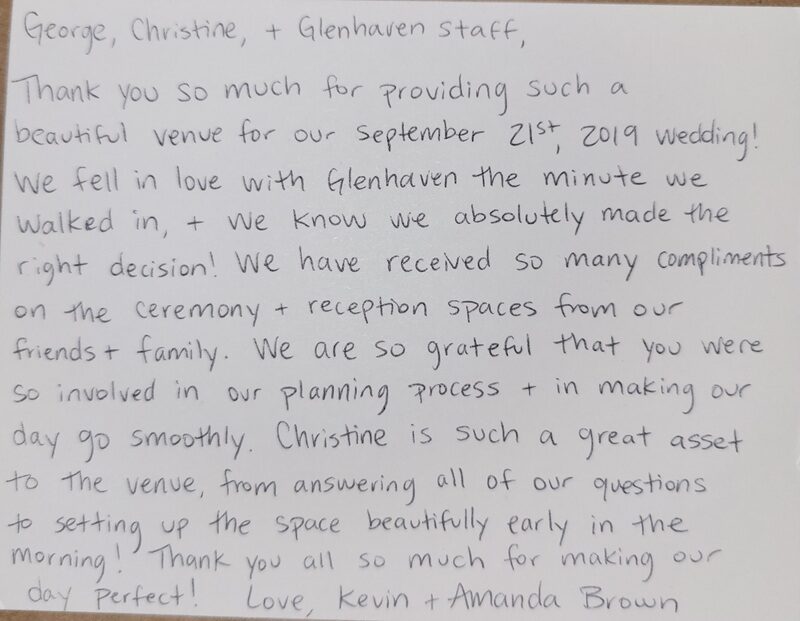 George, Christine, + Glenhaven staff,
Thank you so much for providing such a
beautiful venue for our September 21st, 2019 wedding!
We fell in love with Glenhaven the minute we
walked in, + we know we absolutely made the
right decision! We have received so many compliments
on the ceremony + reception spaces from our
friends + family. We are so grateful that you were
so involved in our planning process + in making our
day go smoothly. Christine is such a great asset
to the venue, from answering all of our questions
to setting up the space beautifully early in the
morning! Thank you all so much for making our
day perfect! Love, Kevin + Amanda Brown